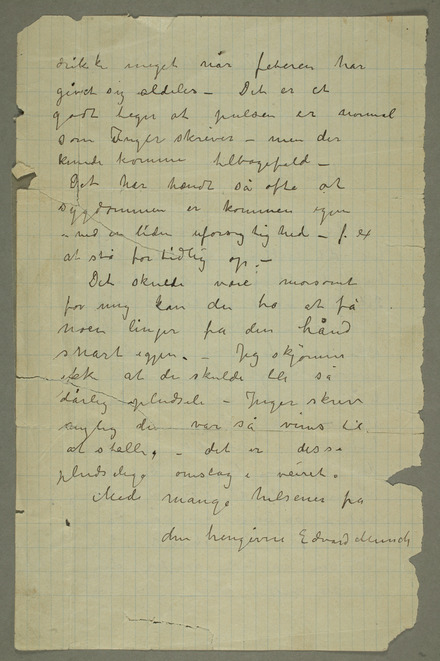 drikke meget når feberen har
givet sig aldeles – Det er et
godt tegn at pulsen er normal
som Inger skriver – men der
kunde komme tilbagefald –
Det har hændt så ofte at
sygdommen er kommen igen
ved en liden uforsigtighed – f. ex
at stå for tidlig op. –
Det skulde være morsomt
for mig kan du tro at få
noen linjer fra din hånd
snart igjen. – Jeg skjønner
ikke at du skulde bli så
dårlig pludseli – Inger skrev
du var så til
at stelle, – det er disse
pludselige omslag i veiret.
Med mange hilsener fra
din hengivne Edvard Munch